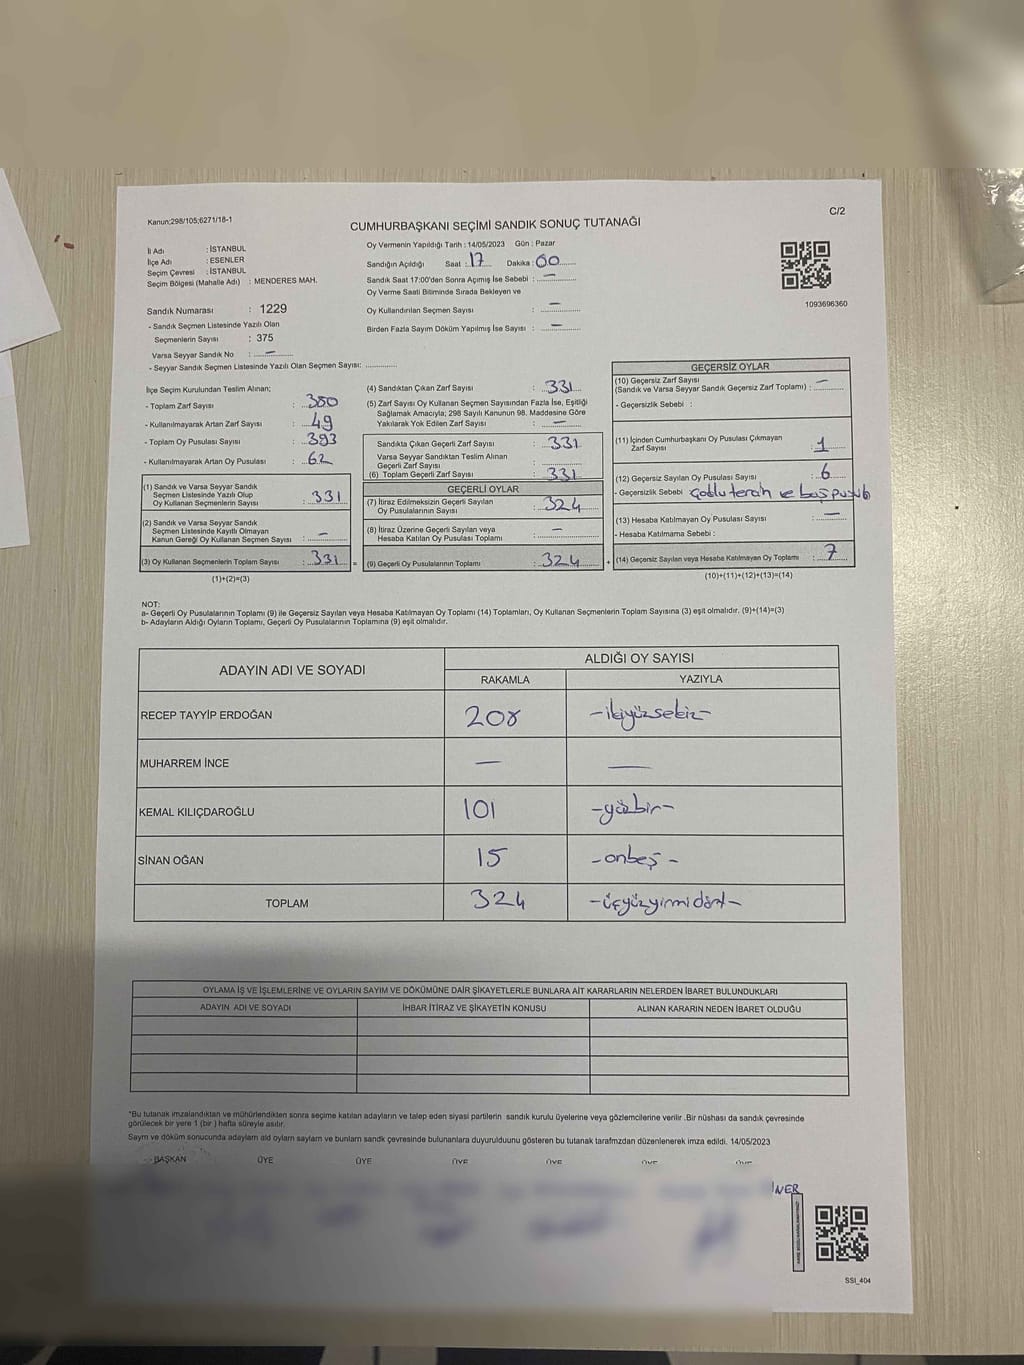 Kanun;298/105;6271/18-1
C/2
CUMHURBAŞKANI SEÇİMİ SANDIK SONUÇ TUTANAĞI
İl Adı : İSTANBUL
İlçe Adı : ESENLER
Seçim Çevresi : İSTANBUL
Seçim Bölgesi (Mahalle Adı) : MENDERES MAH.
Sandık Numarası : 1229
- Sandık Seçmen Listesinde Yazılı Olan
Seçmenlerin Sayısı : 375
Varsa Seyyar Sandık No : —
- Seyyar Sandık Seçmen Listesinde Yazılı Olan Seçmen Sayısı:
Oy Vermenin Yapıldığı Tarih : 14/05/2023 Gün : Pazar
Sandığın Açıldığı Saat : 17 Dakika : 00
Sandık Saat 17:00'den Sonra Açımış İse Sebebi : —
Oy Verme Saati Bitiminde Sırada Bekleyen ve
Oy Kullandırılan Seçmen Sayısı : —
Birden Fazla Sayım Döküm Yapılmış İse Sayısı : —
1093696360
İlçe Seçim Kurulundan Teslim Alınan;
- Toplam Zarf Sayısı : 380
- Kullanılmayarak Artan Zarf Sayısı : 49
- Toplam Oy Pusulası Sayısı : 393
- Kullanılmayarak Artan Oy Pusulası : 62
(1) Sandık ve Varsa Seyyar Sandık
Seçmen Listesinde Yazılı Olup
Oy Kullanan Seçmenlerin Sayısı : 331
(2) Sandık ve Varsa Seyyar Sandık
Seçmen Listesinde Kayıtlı Olmayan
Kanun Gereği Oy Kullanan Seçmen Sayısı : —
(3) Oy Kullanan Seçmenlerin Toplam Sayısı : 331 =
(1)+(2)=(3)
(4) Sandıktan Çıkan Zarf Sayısı : 331
(5) Zarf Sayısı Oy Kullanan Seçmen Sayısından Fazla İse, Eşitliği
Sağlamak Amacıyla; 298 Sayılı Kanunun 98. Maddesine Göre
Yakılarak Yok Edilen Zarf Sayısı : —
Sandıkta Çıkan Geçerli Zarf Sayısı : 331
Varsa Seyyar Sandıktan Teslim Alınan
Geçerli Zarf Sayısı :
(6) Toplam Geçerli Zarf Sayısı : 331
GEÇERLİ OYLAR
(7) İtiraz Edilmeksizin Geçerli Sayılan
Oy Pusulalarının Sayısı : 324
(8) İtiraz Üzerine Geçerli Sayılan veya
Hesaba Katılan Oy Pusulası Toplamı : —
(9) Geçerli Oy Pusulalarının Toplamı : 324 +
GEÇERSİZ OYLAR
(10) Geçersiz Zarf Sayısı
(Sandık ve Varsa Seyyar Sandık Geçersiz Zarf Toplamı) : —
- Geçersizlik Sebebi :
(11) İçinden Cumhurbaşkanı Oy Pusulası Çıkmayan
Zarf Sayısı : 1
(12) Geçersiz Sayılan Oy Pusulası Sayısı : 6
- Geçersizlik Sebebi ve boş
(13) Hesaba Katılmayan Oy Pusulası Sayısı : —
- Hesaba Katılmama Sebebi :
(14) Geçersiz Sayılan veya Hesaba Katılmayan Oy Toplamı : 7
(10)+(11)+(12)+(13)=(14)
NOT:
a- Geçerli Oy Pusulalarının Toplamı (9) ile Geçersiz Sayılan veya Hesaba Katılmayan Oy Toplamı (14) Toplamları, Oy Kullanan Seçmenlerin Toplam Sayısına (3) eşit olmalıdır. (9)+(14)=(3)
b- Adayların Aldığı Oyların Toplamı, Geçerli Oy Pusulalarının Toplamına (9) eşit olmalıdır.
ADAYIN ADI VE SOYADI ALDIĞI OY SAYISI
RAKAMLA YAZIYLA
RECEP TAYYİP ERDOĞAN 208 -ikiyüzsekiz-
MUHARREM İNCE — —
KEMAL KILIÇDAROĞLU 101 -yüzbir-
SİNAN OĞAN 15 -onbeş-
TOPLAM 324 -üçyüzyirmidört-
OYLAMA İŞ VE İŞLEMLERİNE VE OYLARIN SAYIM VE DÖKÜMÜNE DAİR ŞİKAYETLERLE BUNLARA AİT KARARLARIN NELERDEN İBARET BULUNDUKLARI
ADAYIN ADI VE SOYADI İHBAR İTİRAZ VE ŞİKAYETİN KONUSU ALINAN KARARIN NEDEN İBARET OLDUĞU
*Bu tutanak imzalandıktan ve mühürlendikten sonra seçime katılan adayların ve talep eden siyasi partilerin sandık kurulu üyelerine veya gözlemcilerine verilir .Bir nüshası da sandık çevresinde
görülecek bir yere 1 (bir ) hafta süreyle asılır.
Sayım ve döküm sonucunda adaylarn ald oylarn saylarn ve bunlarn sandk çevresinde bulunanlara duyurulduunu gösteren bu tutanak tarafmzdan düzenlenerek imza edildi. 14/05/2023
BAŞKAN ÜYE ÜYE ÜYE ÜYE ÜYE ÜYE
İNER
SSI_404